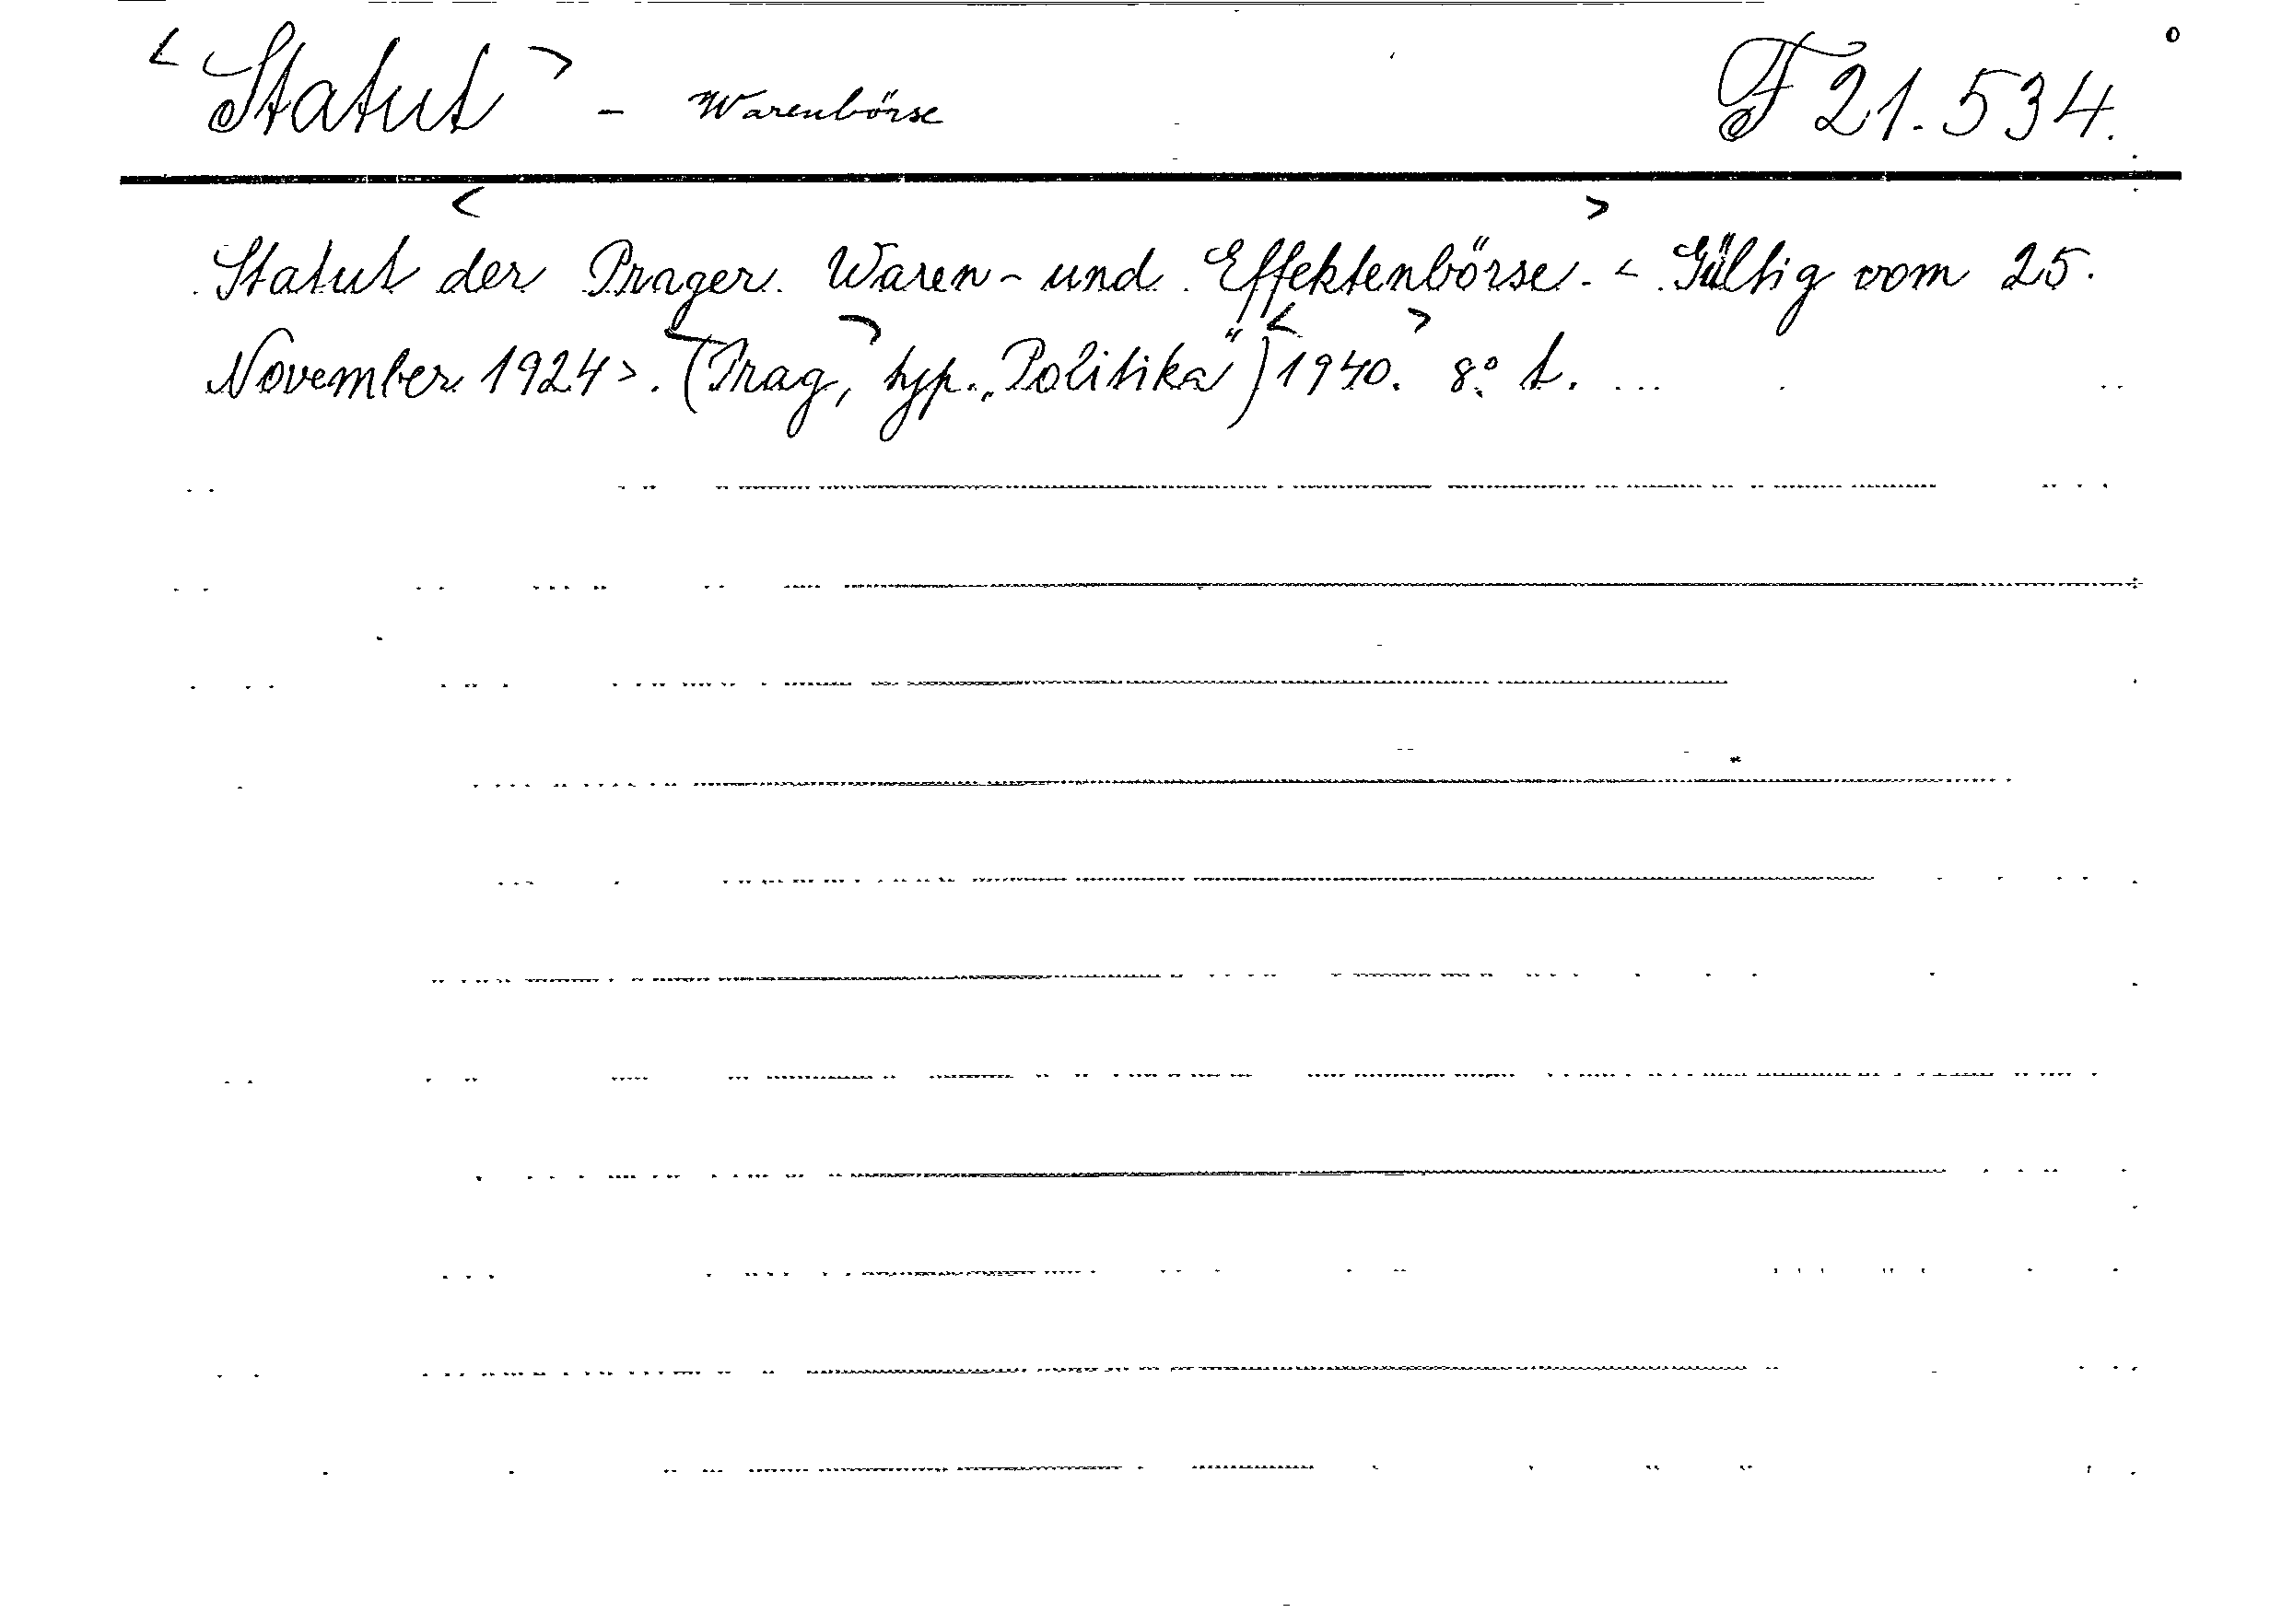 <Statut> - Warenbörse F 21.534.
Statut <der Prager Waren- und Effektenbörse>. < Gültig vom 25.
November 1924>. (<Prag,> typ. „Politika“) <1940.> 8° t.